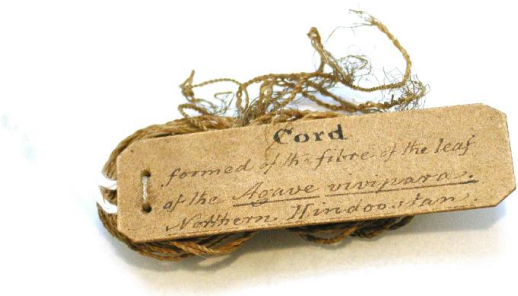 Cord
formed of the fibre of the leaf
of the Agave vivipara.
Northern Hindoostan.